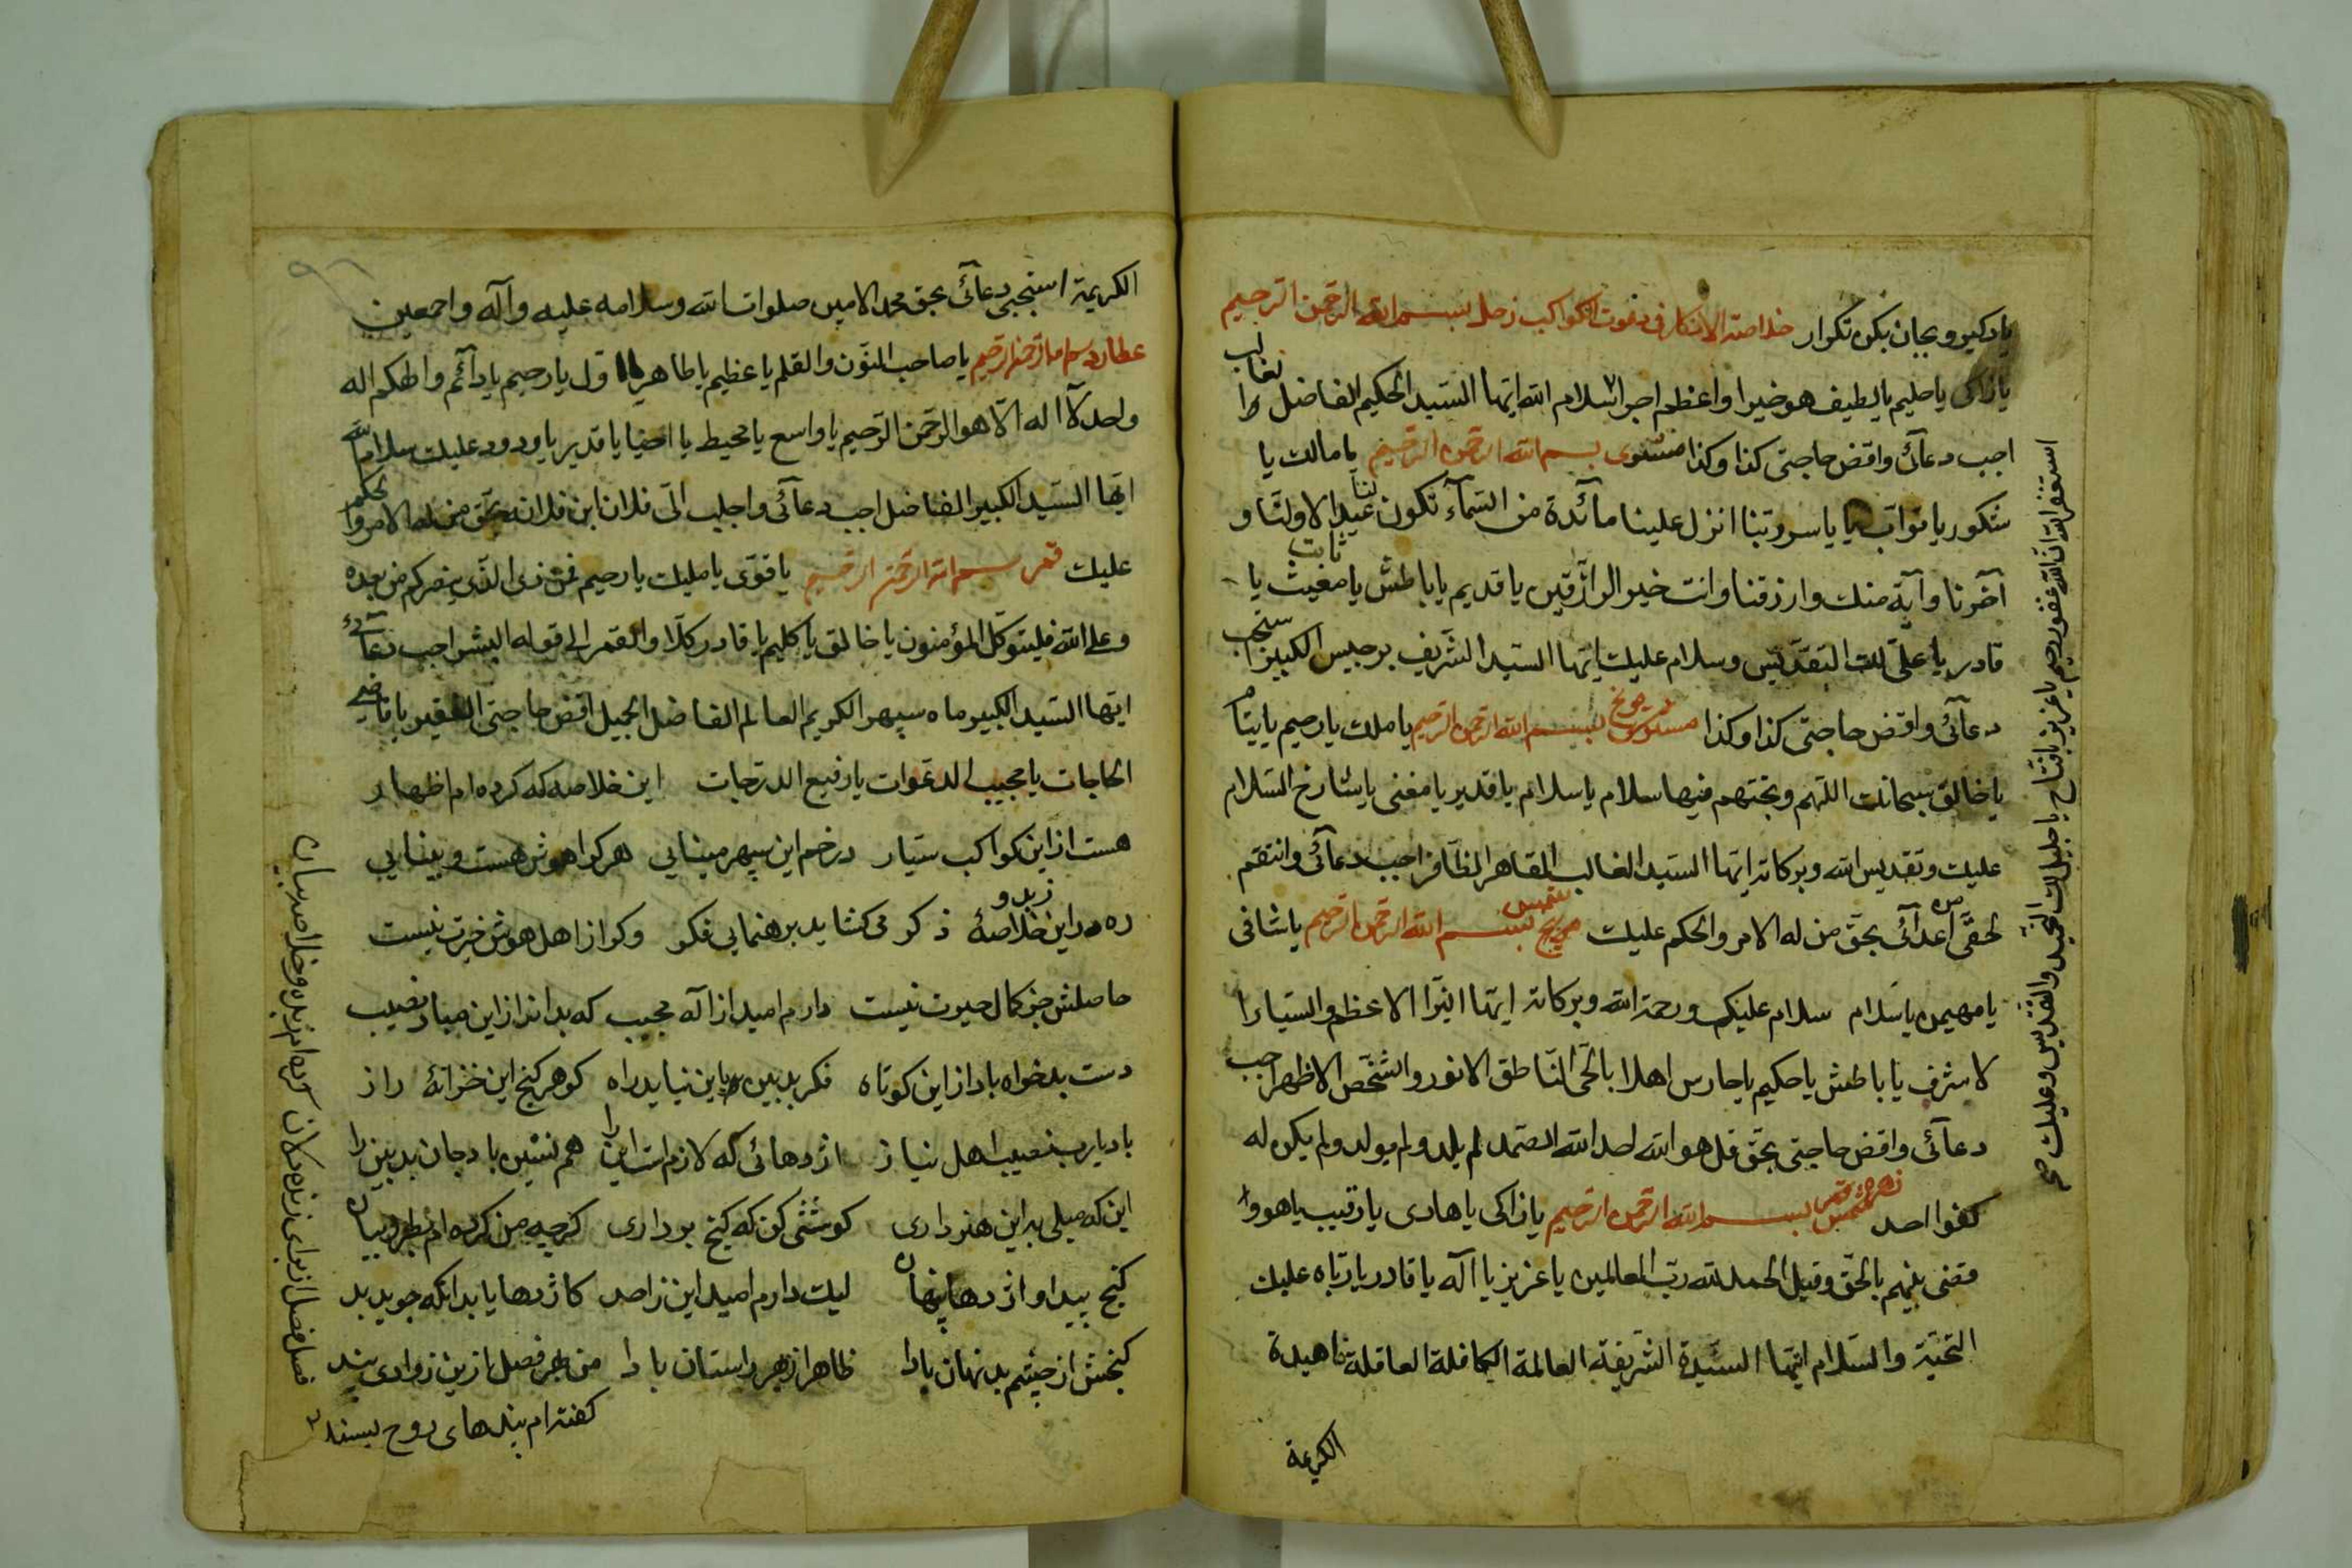 یاد کیر و بجان بکن تکرار خلاصة الافکار فی دعوت الکواکب زحل بسم الله الرحمن الرحیم
یا زاکی یا حلیم یا لطیف هو خیرا واعظم اجرا سلام الله ایها السید الحکیم الفاضل
اجب دعائی واقض حاجتی کذا وکذا مشتری بسم الله الرحمن الرحیم یا مالک یا
شکور یا تواب یا ربنا انزل علینا مائدة من السماء تکون لنا عیدا لاولنا و
آخرنا وآیة منک وارزقنا وانت خیر الرازقین یا قدیم یا باطش یا مغیث یا ثابت
قادر یا علی لک التقدیس وسلام علیک ایها السید الشریف برجیس الکبیر استجب
دعائی واقض حاجتی کذا وکذا مریخ بسم الله الرحمن الرحیم یا ملک یا رحیم یا
یا خالق سبحانک اللهم وتحیتهم فیها سلام یا سلام یا قدیر یا مغنی یا السلام
علیک وتقدیس الله وبرکاته ایها السید الغالب القاهر الظافر اجب دعائی وانتقم
لحقی من اعدائی بحق من له الامر والحکم علیک شمس بسم الله الرحمن الرحیم یا شافی
یا مهیمن یا سلام سلام علیکم ورحمة الله وبرکاته ایها النیر الاعظم والسیار
لاشرف یا باطش یا حکیم یا حارس اهلا بالحی الناطق الانور والشخص الاظهر اجب
دعائی واقض حاجتی بحق قل هو الله احد الله الصمد لم یلد ولم یولد ولم یکن له
کفوا احد زهره بسم الله الرحمن الرحیم یا زاکی یا هادی یا رقیب یا هو و
قضی بینهم بالحق وقیل الحمد لله رب العالمین یا عزیز یا اله یا قادر یا رباه علیک
التحیة والسلام ایتها السیدة الشریفة العالمة الکافلة العاقلة ناهیدة
الکریمة
استغفر الله ان الله غفور رحیم یا عزیز یا فتاح یا جلیل لک التحمید والتقدیس وعلیک صح
الکریمة استجیبی دعائی بحق محمد الامین صلوات الله وسلامه علیه وآله واجمعین
عطارد بسم الله الرحمن الرحیم یا صاحب النون والقلم یا عظیم یا طاهر یا اول یا رحیم یا دائم والهکم اله
واحد لا اله الا هو الرحمن الرحیم یا واسع یا محیط یا قدیر یا ودود علیک سلام الله
ایها السید الکبیر الفاضل اجب دعائی واجلب الی فلان ابن فلانه بحق من له الامر والحکم
علیک قمر بسم الله الرحمن الرحیم یا قوی یا ملیک یا رحیم فمن ذی الذی ینصرکم من بعده
وعلی الله فلیتوکل المؤمنون یا خالق یا کلیم یا قادر کلا والقمر الی قوله البشر اجب دعائی
ایها السید الکبیر ماه سپهر الکریم العالم الفاضل الجمیل اقض حاجتی الفقیر یا قاضی
الحاجات یا مجیب الدعوات یا رفیع الدرجات این خلاصه که کرده ام اظهار
هست از این کواکب سیار در خم این سپهر مینایی هر کرا هوش هست و بینایی
ره در این زبد و خلاصهٔ ذکر می کشاید برهنمایی فکر وکر از اهل هوش خبرت نیست
حاصلش جز کمال حیرت نیست دارم امید از اله مجیب که بد انداز این مباد نصیب
دست بدخواه باد از این کوتاه فکر بدبین باین نیابد راه کوهر کنج این خزانهٔ راز
باد یارب نصیب اهل نیاز اژدهائی که لازم است این را هم نشین باد جان بدبین را
این که میلی بدین هنر داری کوششی کن که کنج برداری کرچه من کرده ام بطرز بیان
کنج پیدا و اژدها پنهان لیک دارم امید این ز احد کاژدها یابد آنکه جوید بد
کنجش از چشم بد نهان بادا ظاهر از بهر راستان بادا من بهر فصل از این ز وادی پند
کفته ام پندهای روح پسند
فصل فصل از برای زنده دلان کرده ام زبده و خلاصه بیان